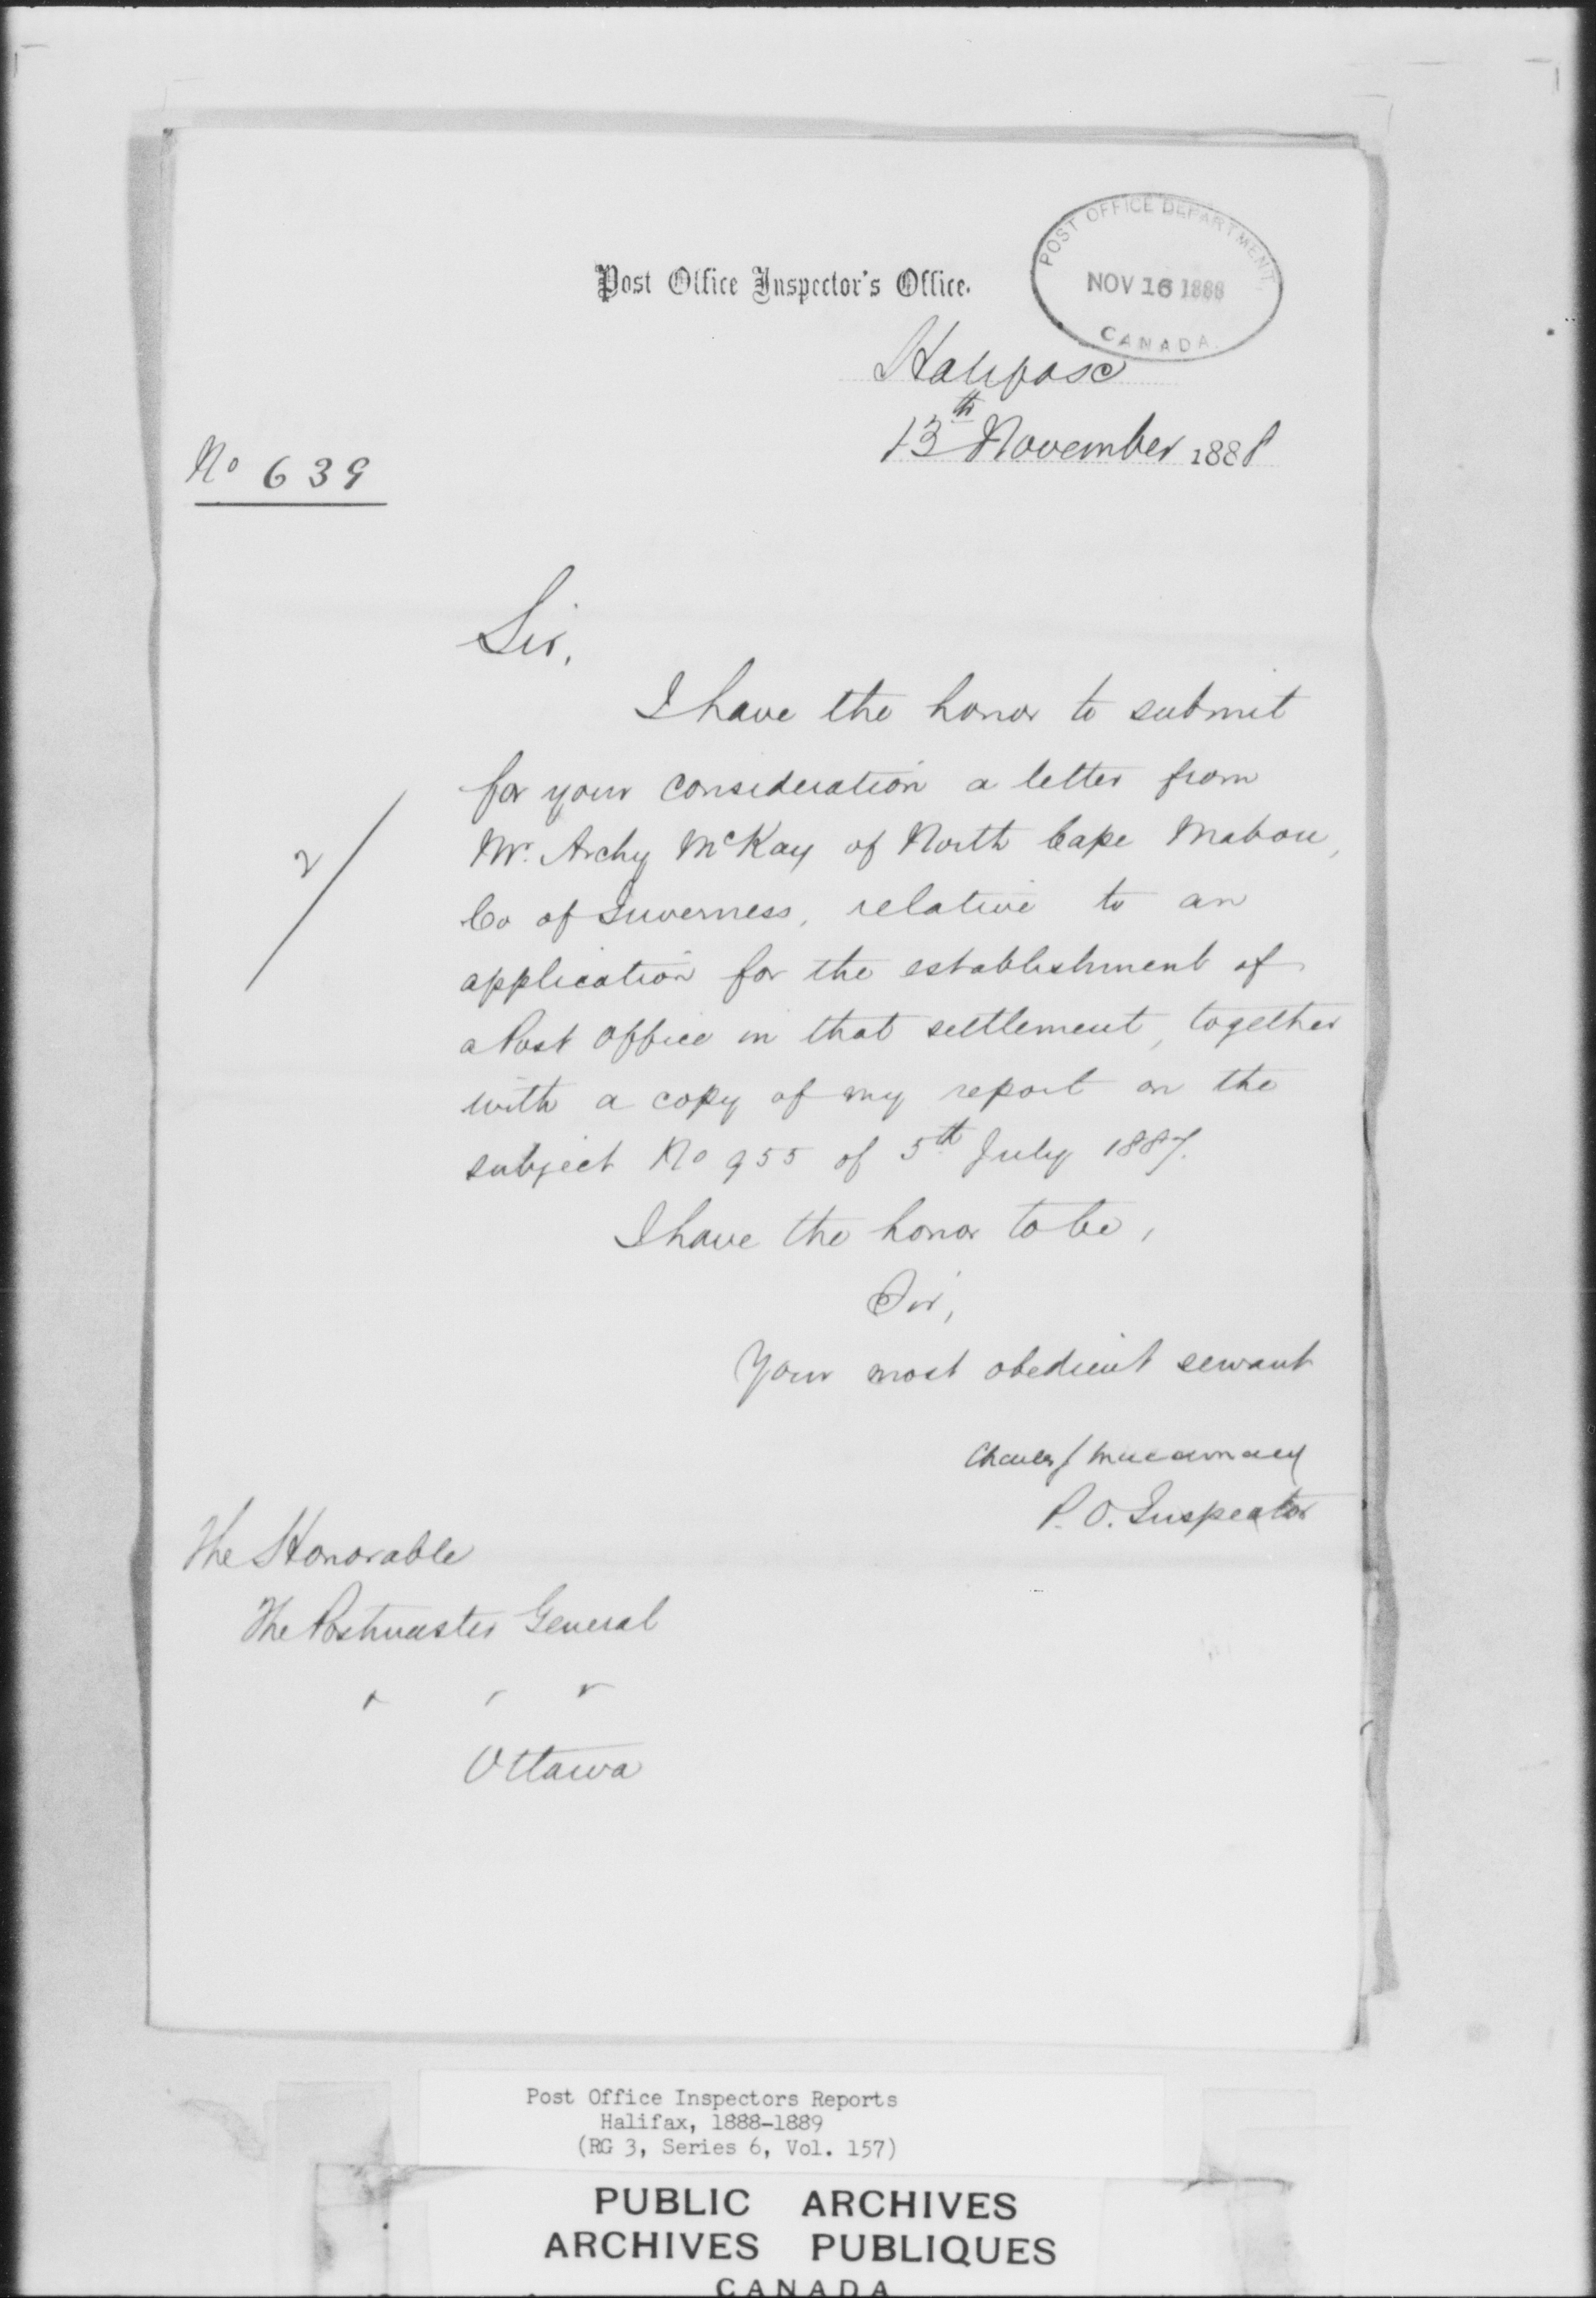 POST OFFICE DEPARTMENT,
NOV 16 1888
CANADA.
Post Office Inspector's Office.
Halifax
13th November 1888
No 639
Sir,
I have the honor to submit
for your consideration a letter from
Mr. Archy McKay of North Cape Mabou,
Co of Inverness, relative to an
application for the establishment of
a Post Office in that settlement, together
with a copy of my report on the
subject No 955 of 5th July 1887.
2/
I have the honor to be,
Sir,
Your most obedient servant
Charles J
P. O. Inspector
The Honorable
The Postmaster General
" " "
Ottawa
Post Office Inspectors Reports
Halifax, 1888-1889
(RG 3, Series 6, Vol. 157)
PUBLIC ARCHIVES
ARCHIVES PUBLIQUES
CANADA